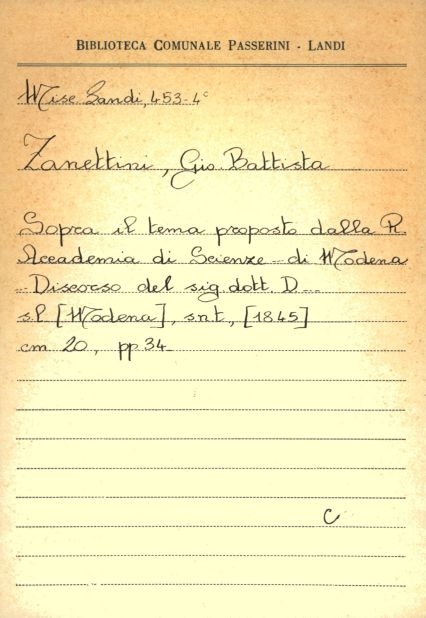 BIBLIOTECA COMUNALE PASSERINI - LANDI
Misc Landi, 453-4c
Zanettini, Gio. Battista
Sopra il tema proposto dalla R.
Accademia di Scienze di Modena
Discorso del sig. dott. D
s.l. [Modena], s.n.t., [1845]
cm 20, pp 34
C